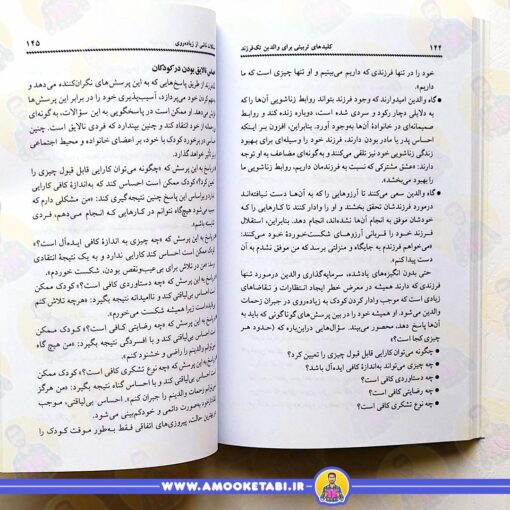 ۱۴۴ کلیدهای تربیتی برای والدین تک‌فرزند
خود را در تنها فرزندی که داریم می‌بینیم و او تنها چیزی است که ما
داریم».
گاه والدین امیدوارند که وجود فرزند بتواند روابط زناشویی آن‌ها را که
به دلایلی دچار رکود و سردی شده است، دوباره زنده کند و روابط
صمیمانه‌ای در خانوادهٔ آن‌ها به‌وجود آورد. بنابراین، افزون بر اینکه
احساس پدر یا مادر بودن دارند، فرزند خود را وسیله‌ای برای بهبود
زندگی زناشویی خود نیز تلقی می‌کنند و به‌گونه‌ای مضاعف به او توجه
دارند: «عشق مشترکی که نسبت به فرزندمان داریم، روابط زناشویی ما
را بهبود می‌بخشد».
گاه والدین سعی می‌کنند تا آرزوهایی که به آن‌ها دست نیافته‌اند
درمورد فرزندشان تحقق بخشند و او را وادار کنند تا کارهایی را که
خودشان موفق به انجام آن‌ها نشده‌اند، انجام دهد. بنابراین، استقلال
فرزند خود را قربانی آرزوهای شکست‌خوردهٔ خود می‌کنند:
«می‌خواهم فرزندم به جایگاه و منزلتی برسد که من موفق نشدم به آن
دست پیدا کنم».
حتی بدون انگیزه‌های یادشده، سرمایه‌گذاری والدین درمورد تنها
فرزندی که دارند همیشه در معرض خطر ایجاد انتظارات و تقاضاهای
زیادی است که موجب وادار کردن کودک به زیاده‌روی در جبران زحمات
والدین می‌شود. او همیشه خود را در بین پرسش‌های گوناگونی که باید به
آن‌ها پاسخ دهد، محصور می‌بیند. سؤال‌هایی دراین‌باره که (حدود هر
چیزی کجا است؟)
چگونه می‌توان کارایی قابل قبول چیزی را تعیین کرد؟
چه چیزی می‌تواند به‌اندازهٔ کافی ایده‌آل باشد؟
چه دستاوردی کافی است؟
چه رضایتی کافی است؟
چه نوع تشکری کافی است؟
ناشی از زیاده‌روی ۱۴۵
نالایق بودن در کودکان
از طریق پاسخ‌هایی که به این پرسش‌های نگران‌کننده می‌دهد و
کردن خود می‌پردازد، آسیب‌پذیری خود را در برابر این پرسش‌ها
ممکن است در پاسخگویی به این سؤالات، به‌گونه‌ای
از خود انتقاد کند و چنین بپندارد که فردی نالایق است. چنین
برخورد کودک با خود، بر اعضای خانواده و محیط اجتماعی
تأثیر خواهد گذارد.
پاسخ به این پرسش که «چگونه می‌توان کارایی قابل قبول چیزی را
تعیین کرد؟» کودک ممکن است احساس کند که به‌اندازهٔ کافی کارایی
ندارد و بر اساس این پاسخ چنین نتیجه‌گیری کند: «من مشکلی دارم که
می‌شود هیچ‌گاه نتوانم در کارهایی که انجام می‌دهم، فردی
باشم».
پاسخ به این پرسش که «چه چیزی به اندازه کافی ایده‌آل است؟»
کودک ممکن است احساس کند کارایی ندارد و به یک نتیجهٔ انتقادی
برسد: «من در تلاش برای بی‌عیب‌ونقص بودن، شکست خوردم».
پاسخ به این پرسش که «چه دستاوردی کافی است؟» کودک ممکن
است احساس بی‌لیاقتی کند و ناامیدانه نتیجه بگیرد: «هرچه تلاش کنم
زیرا همیشه شکست می‌خورم».
پاسخ به این پرسش که «چه رضایتی کافی است؟» کودک ممکن
است احساس بی‌لیاقتی کند و با افسردگی نتیجه بگیرد: «من هیچ گاه
نمی‌توانم والدینم را راضی و خشنود کنم».
پاسخ به این پرسش که «چه نوع تشکری کافی است؟» کودک ممکن
است احساس بی‌لیاقتی کند و با احساس گناه نتیجه بگیرد: «من هرگز
نمی‌توانم زحمات والدینم را جبران کنم». احساس بی‌لیاقتی، موجب
به‌صورت دائمی و خودکم‌بینی می‌شود.
بهترین حالت، پیروزی‌های اتفاقی فقط به‌طور موقت کودک را
WWW.AMOOKETABI.IR